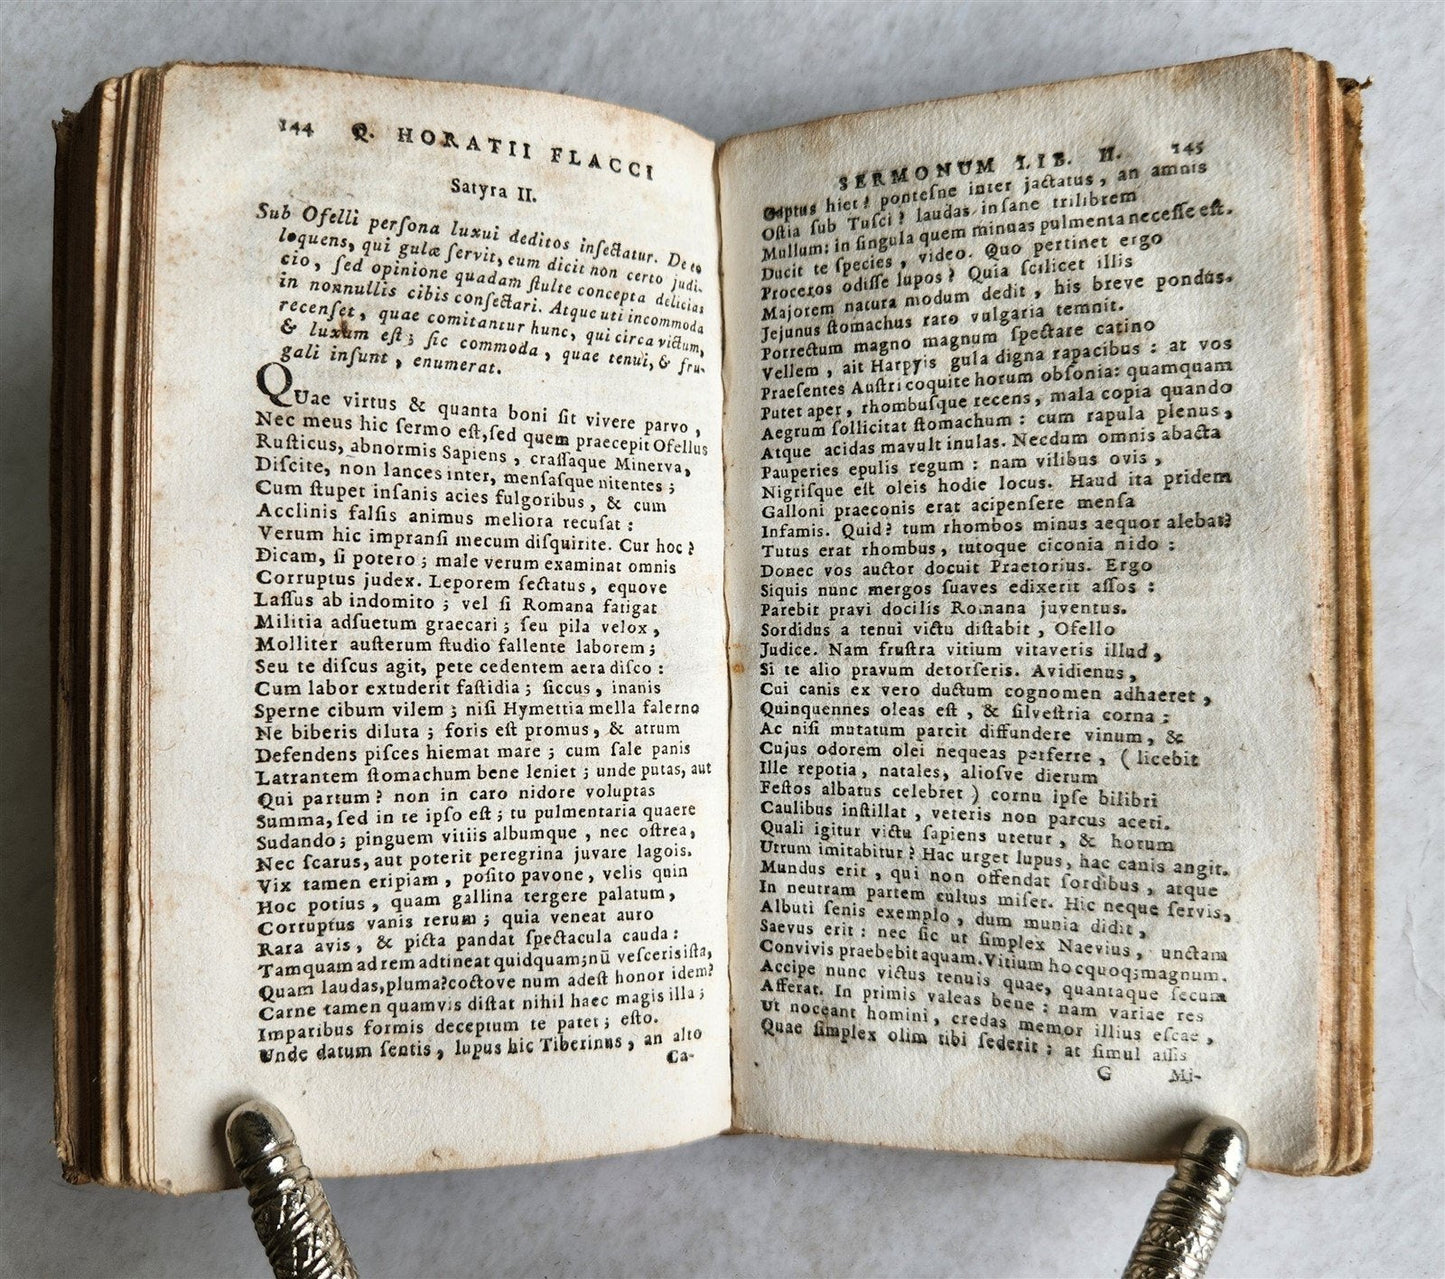 144 Q. HORATII FLACCI
Satyra II.
Sub Ofelli perſona luxui deditos inſectatur. De eo
loquens, qui gulæ ſervit, eum dicit non certo judi-
cio, ſed opinione quadam ſtulte concepta delicias
in nonnullis cibis conſectari. Atque uti incommoda
recenſet, quae comitantur hunc, qui circa victum,
& luxum eſt; ſic commoda, quae tenui, & fru-
gali inſunt, enumerat.
QUae virtus & quanta boni ſit vivere parvo,
Nec meus hic ſermo eſt, ſed quem praecepit Ofellus
Ruſticus, abnormis Sapiens, craſſaque Minerva,
Diſcite, non lances inter, menſaſque nitentes;
Cum ſtupet inſanis acies fulgoribus, & cum
Acclinis falſis animus meliora recuſat:
Verum hic impranſi mecum diſquirite. Cur hoc?
Dicam, ſi potero; male verum examinat omnis
Corruptus judex. Leporem ſectatus, equove
Laſſus ab indomito; vel ſi Romana fatigat
Militia adſuetum graecari; ſeu pila velox,
Molliter auſterum ſtudio fallente laborem;
Seu te diſcus agit, pete cedentem aera diſco:
Cum labor extuderit faſtidia; ſiccus, inanis
Sperne cibum vilem; niſi Hymettia mella falerno
Ne biberis diluta; foris eſt promus, & atrum
Defendens piſces hiemat mare; cum ſale panis
Latrantem ſtomachum bene leniet; unde putas, aut
Qui partum? non in caro nidore voluptas
Summa, ſed in te ipſo eſt; tu pulmentaria quaere
Sudando; pinguem vitiis albumque, nec oſtrea,
Nec ſcarus, aut poterit peregrina juvare lagois.
Vix tamen eripiam, poſito pavone, velis quin
Hoc potius, quam gallina tergere palatum,
Corruptus vanis rerum; quia veneat auro
Rara avis, & picta pandat ſpectacula cauda:
Tamquam ad rem adtineat quidquam; nū veſceris iſta,
Quam laudas, pluma? coctove num adeſt honor idem?
Carne tamen quamvis diſtat nihil haec magis illa;
Imparibus formis deceptum te patet; eſto.
Unde datum ſentis, lupus hic Tiberinus, an alto
Ca-
SERMONUM LIB. II. 145
Captus hiet? ponteſne inter jactatus, an amnis
Oſtia ſub Tuſci? laudas inſane trilibrem
Mullum: in ſingula quem minuas pulmenta neceſſe eſt.
Ducit te ſpecies, video. Quo pertinet ergo
Proceros odiſſe lupos? Quia ſcilicet illis
Majorem natura modum dedit, his breve pondus.
Jejunus ſtomachus raro vulgaria temnit.
Porrectum magno magnum ſpectare catino
Vellem, ait Harpyis gula digna rapacibus: at vos
Praeſentes Auſtri coquite horum obſonia: quamquam
Putet aper, rhombuſque recens, mala copia quando
Aegrum ſollicitat ſtomachum: cum rapula plenus,
Atque acidas mavult inulas. Necdum omnis abacta
Pauperies epulis regum: nam vilibus ovis,
Nigriſque eſt oleis hodie locus. Haud ita pridem
Galloni praeconis erat acipenſere menſa
Infamis. Quid? tum rhombos minus aequor alebat?
Tutus erat rhombus, tutoque ciconia nido:
Donec vos auctor docuit Praetorius. Ergo
Siquis nunc mergos ſuaves edixerit aſſos:
Parebit pravi docilis Romana juventus.
Sordidus a tenui victu diſtabit, Ofello
Judice. Nam fruſtra vitium vitaveris illud,
Si te alio pravum detorſeris. Avidienus,
Cui canis ex vero ductum cognomen adhaeret,
Quinquennes oleas eſt, & ſilveſtria corna;
Ac niſi mutatum parcit diffundere vinum, &
Cujus odorem olei nequeas perferre, (licebit
Ille repotia, natales, alioſve dierum
Feſtos albatus celebret) cornu ipſe bilibri
Caulibus inſtillat, veteris non parcus aceti.
Quali igitur victu ſapiens utetur, & horum
Utrum imitabitur? Hac urget lupus, hac canis angit.
Mundus erit, qui non offendat ſordibus, atque
In neutram partem cultus miſer. Hic neque ſervis,
Albuti ſenis exemplo, dum munia didit,
Saevus erit: nec ſic ut ſimplex Naevius, unctam
Convivis praebebit aquam. Vitium hoc quoq; magnum.
Accipe nunc victus tenuis quae, quantaque ſecum
Afferat. In primis valeas bene: nam variae res
Ut noceant homini, credas memor illius eſcae,
Quae ſimplex olim tibi ſederit; at ſimul aſſis
G Mi-